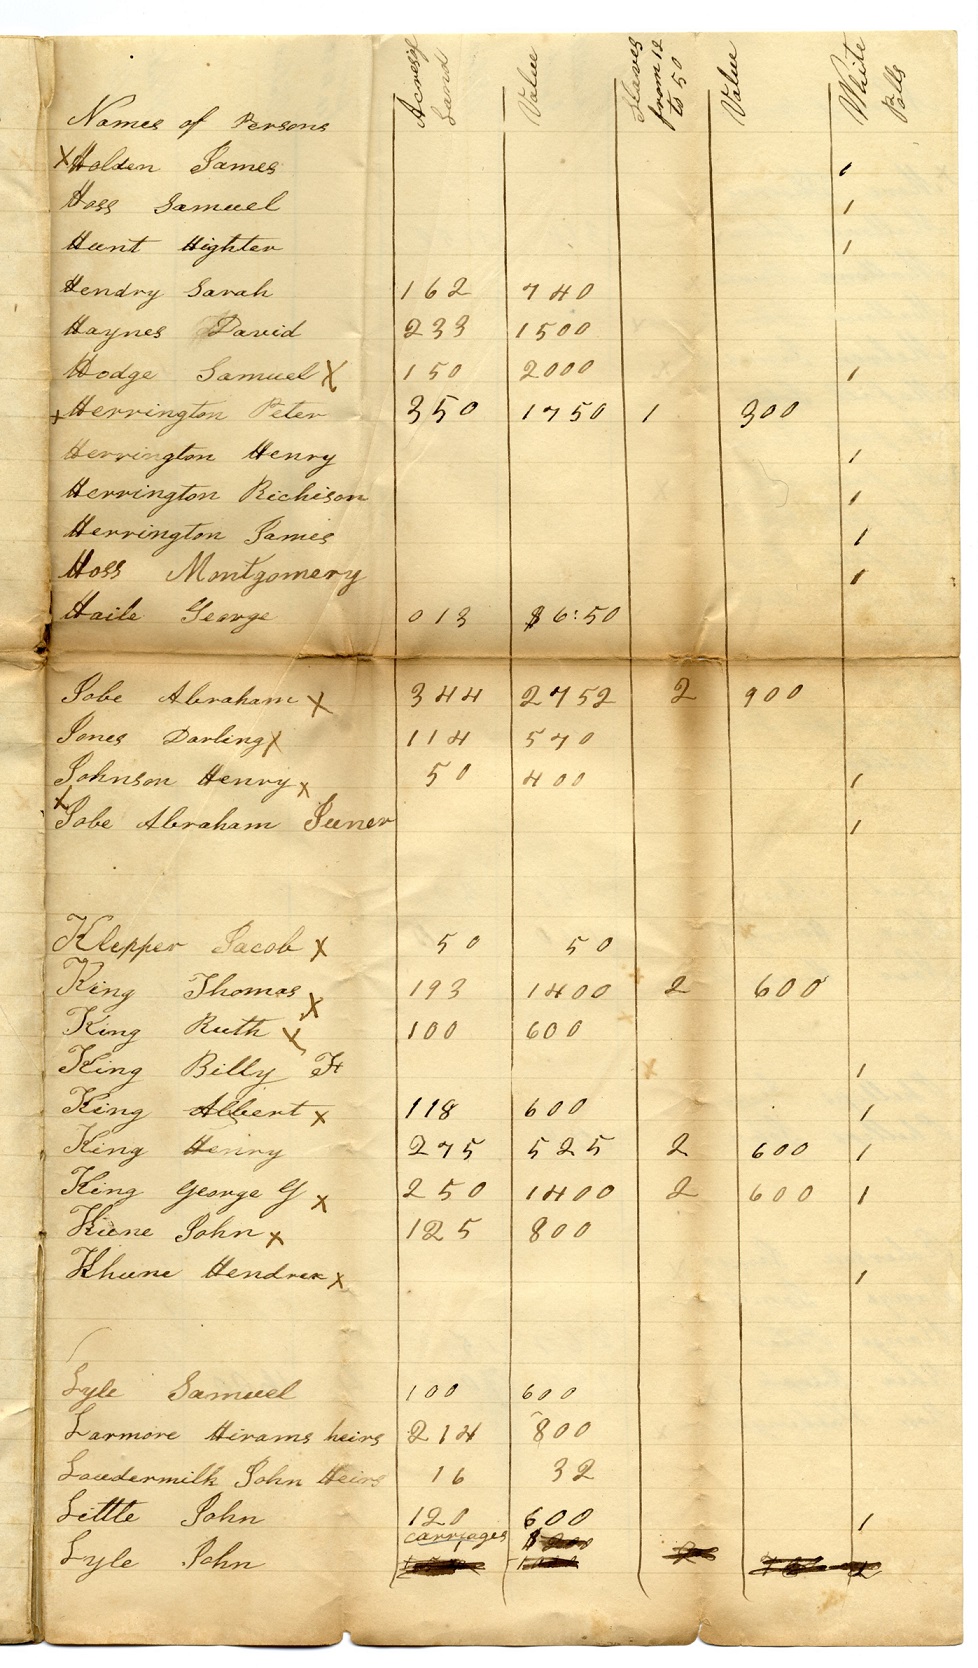 Names of Persons Acres of Land Value Slaves from 12 to 50 Value White Polls
X Holden James 1
Hoss Samuel 1
Hunt Highter 1
Hendry Sarah 162 740
Haynes David 233 1500
Hodge Samuel X 150 2000 1
x Herrington Peter 350 1750 1 300
Herrington Henry 1
Herrington Richison 1
Herrington James 1
Hoss Montgomery 1
Haile George 013 $6:50
Jobe Abraham X 344 2752 2 900
Jones Darling X 114 570
Johnson Henry X 50 400 1
X Jobe Abraham Juner 1
Klepper Jacob X 50 50
King Thomas X 193 1400 2 600
King Ruth X 100 600
King Billy F 1
King Albert X 118 600 1
King Henry 275 525 2 600 1
King George G X 250 1400 2 600 1
Kune John X 125 800
Khune Hendrex X 1
Lyle Samuel 100 600
Larmore Hirams heirs 214 800
Loudermilk John Heirs 16 32
Little John 120 600 1
carriages $200
Lyle John